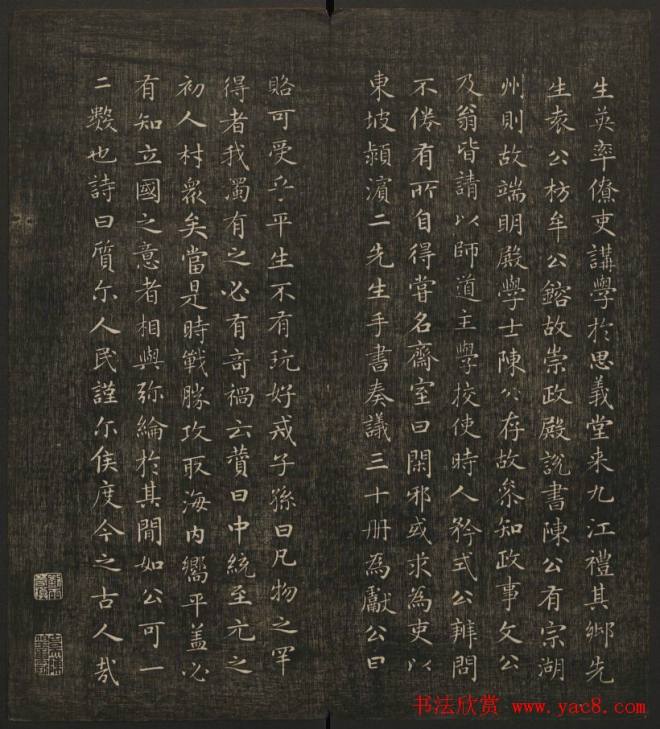 生英率僚吏講學於思義堂来九江禮其鄉先
生袁公枋牟公鎔故崇政殿說書陳公有宗湖
州則故端明殿學士陳公存故叅知政事文公
及翁皆請以師道主學校使時人矜式公辨問
不倦有所自得嘗名齋室曰閑邪或求為吏以
東坡潁濱二先生手書奏議三十册為獻公曰
賂可受乎平生不有玩好戒子孫曰凡物之罕
得者我濁有之必有奇禍云贊曰中統至元之
初人材衆矣當是時戰勝攻取海内嚮平盖必
有知立國之意者相與弥綸於其間如公可一
二數也詩曰質尔人民謹尔侯度今之古人哉
书法欣赏 www.yac8.com